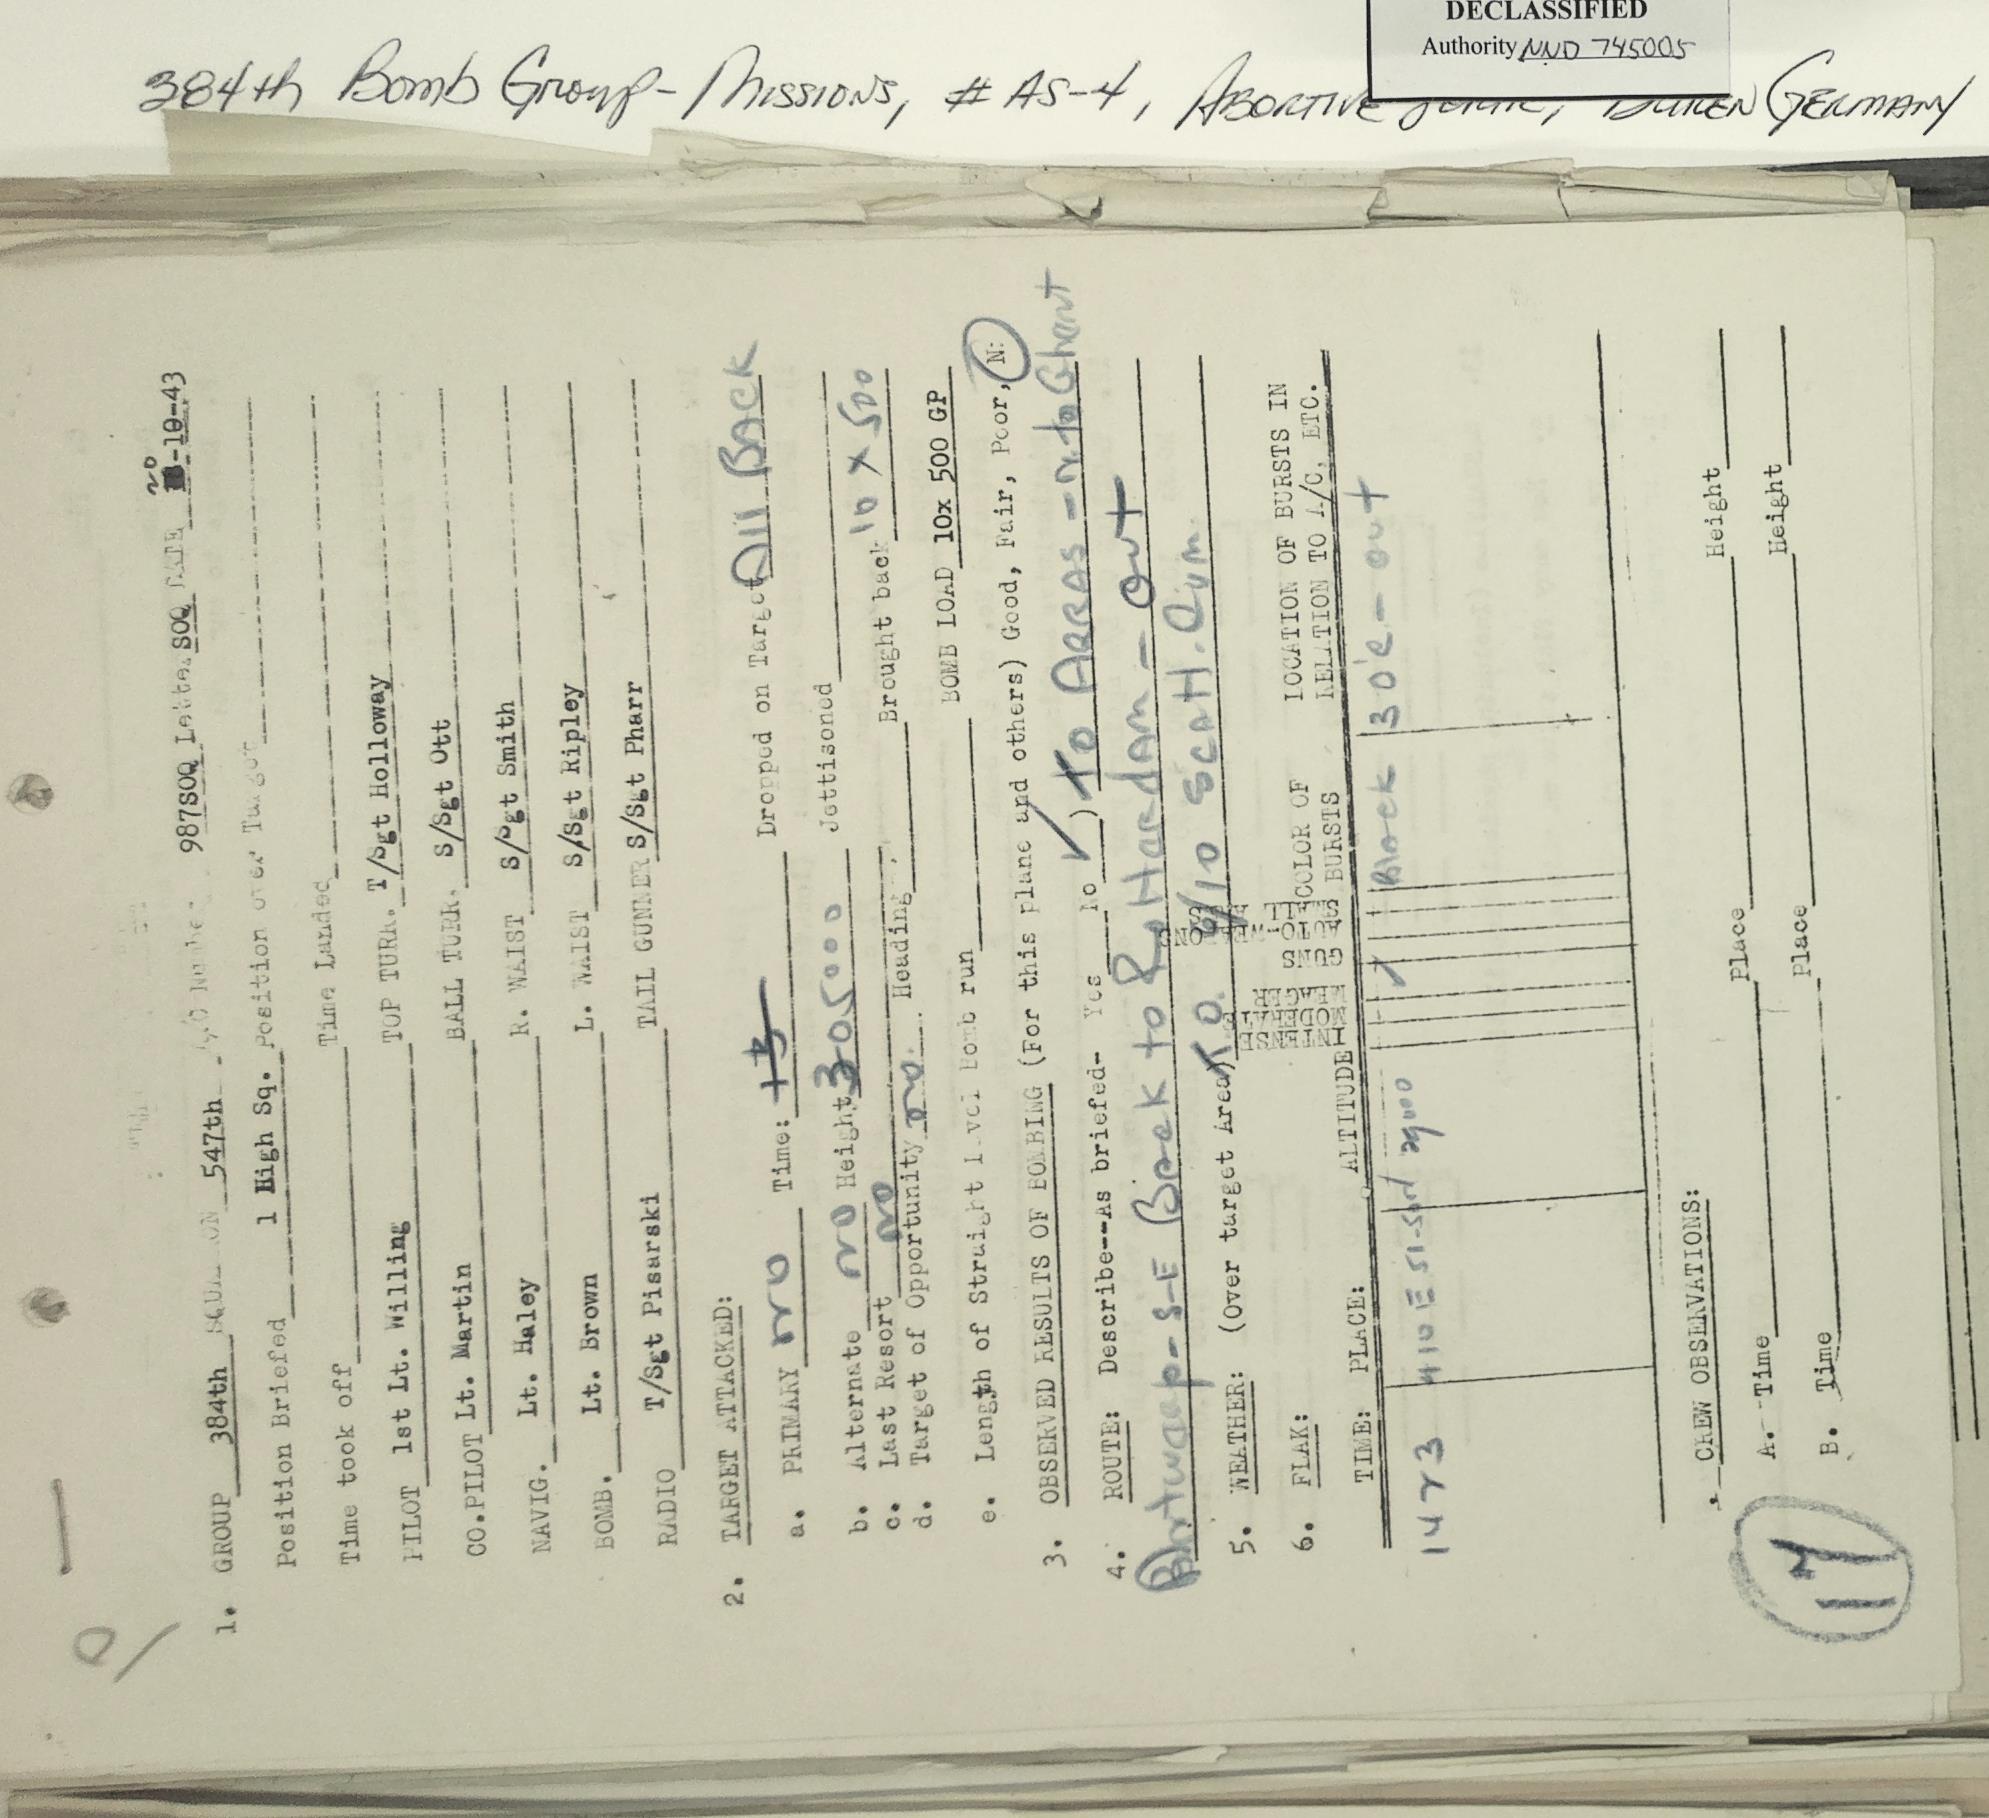 DECLASSIFIED
Authority NND 745005
384th Bomb Group - Missions, # AS-4, Abortive Sortie, Duren Germany
1. GROUP 384th SQUADRON 547th A/C Number 987SOQ Letter SOQ DATE 20-10-43
Position Briefed 1 High Sq. Position over Target
Time took off Time Landed
PILOT 1st Lt. Willing TOP TURR. T/Sgt Holloway
CO.PILOT Lt. Martin BALL TURR. S/Sgt Ott
NAVIG. Lt. Haley R. WAIST S/Sgt Smith
BOMB. Lt. Brown L. WAIST S/Sgt Ripley
RADIO T/Sgt Pisarski TAIL GUNNER S/Sgt Pharr
2. TARGET ATTACKED:
a. PRIMARY no Time: Dropped on Target All BACK
b. Alternate no Height 305000 Jettisoned
c. Last Resort no Heading Brought back 10 x 500
d. Target of Opportunity no.
e. Length of Straight Level Bomb run BOMB LOAD 10x 500 GP
3. OBSERVED RESULTS OF BOMBING (For this plane and others) Good, Fair, Poor, N:
4. ROUTE: Describe--As briefed- Yes No ✓) To ARRAS - n. to Ghent
Antwerp - S-E Back to Rotterdam - out
5. WEATHER: (Over target Area) 6/10 scatt. Cum.
6. FLAK:
TIME: PLACE: ALTITUDE INTENSE MODERATE MEAGER GUNS AUTO-WEAPONS COLOR OF BURSTS LOCATION OF BURSTS IN RELATION TO A/C, ETC.
1423 410E 51-50N 29000 ✓ Black 30'c - out
CREW OBSERVATIONS:
A. Time Place Height
B. Time Place Height
17